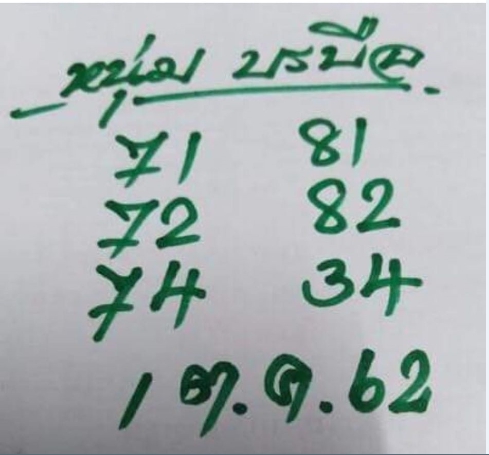 หนุ่ม บรบือ
71 81
72 82
74 34
1 ต.ค.62